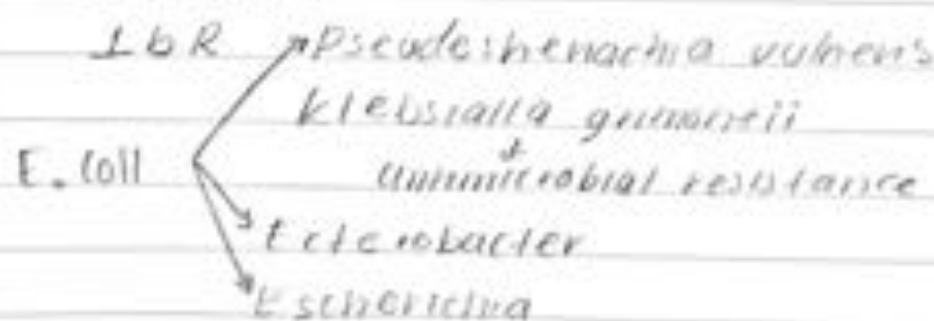 1bR Pseudeshenachia vulneris
klebsialla
E. coli antimicrobial resistance
Ecterobacter
Escherichia